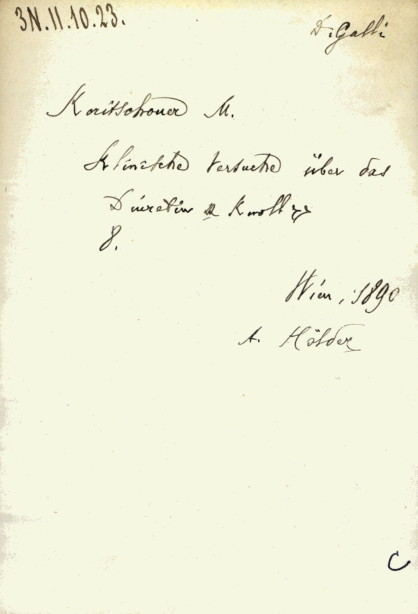 3N.II.10.23.
Dr Galli
Koritschoner M.
Klinische Versuche über das
Diuretin Knoll
8.
Wien, 1890
A. Hölder
C